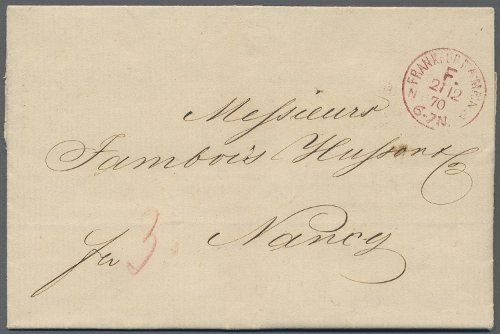 FRANKFURT A. MAIN
F.
21 12
70
6-7N.
Messieurs
Jambois Husson & Co
Nancy
fr 3